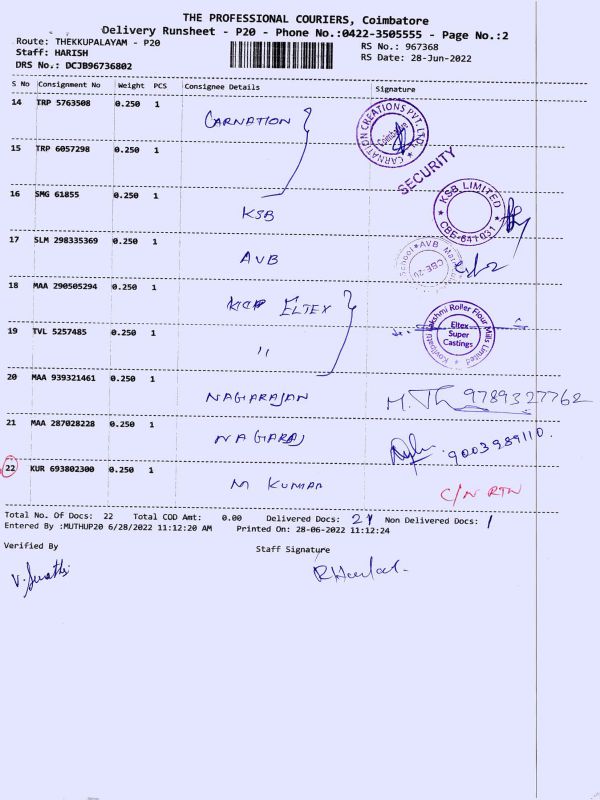 THE PROFESSIONAL COURIERS, Coimbatore
Delivery Runsheet - P20 - Phone No.:0422-3505555 - Page No.:2
Route: THEKKUPALAYAM - P20
RS No.: 967368
Staff: HARISH
RS Date: 28-Jun-2022
DRS No.: DCJB96736802
S No Consignment No Weight PCS Consignee Details Signature
14 TRP 5763508 0.250 1 CARNATION
CARNATION CREATIONS PVT. LTD. Coimbatore
15 TRP 6057298 0.250 1
SECURITY
16 SMG 61855 0.250 1 KSB
KSB LIMITED CBE-641031
17 SLM 298335369 0.250 1 AVB
School AVB CBE-20
18 MAA 290505294 0.250 1 ELTEX
Lakshmi Roller Flour Mills Limited
Eltex
Super
Castings
19 TVL 5257485 0.250 1 "
20 MAA 939321461 0.250 1 NAGARAJAN 9789327762
21 MAA 287028228 0.250 1 NAGARAJ 9003989110.
22 KUR 693802300 0.250 1 M KUMAR C/N RTN
Total No. Of Docs: 22 Total COD Amt: 0.00 Delivered Docs: 21 Non Delivered Docs: 1
Entered By :MUTHUP20 6/28/2022 11:12:20 AM Printed On: 28-06-2022 11:12:24
Verified By Staff Signature